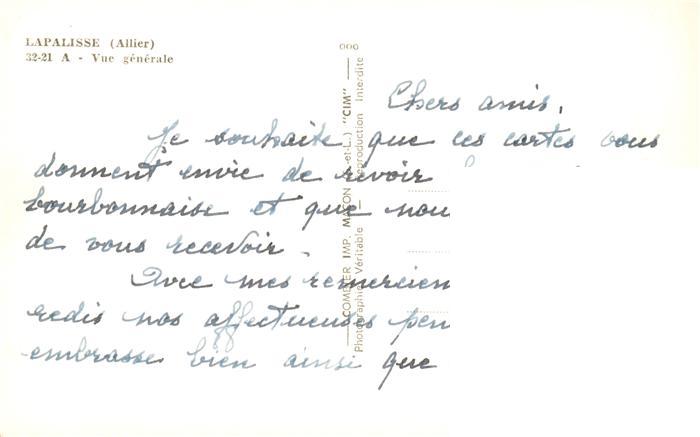 LAPALISSE (Allier)
32-21 A - Vue générale
Chers amis,
Je souhaite que ces cartes vous
donnent envie de revoir
bourbonnaise et que nou
de vous recevoir.
Avec mes remercien
redis nos affectueuses pen
embrasse bien ainsi que
COMBIER IMP. MACON (S.-et-L.) "CIM"
Photographie Véritable — Reproduction Interdite